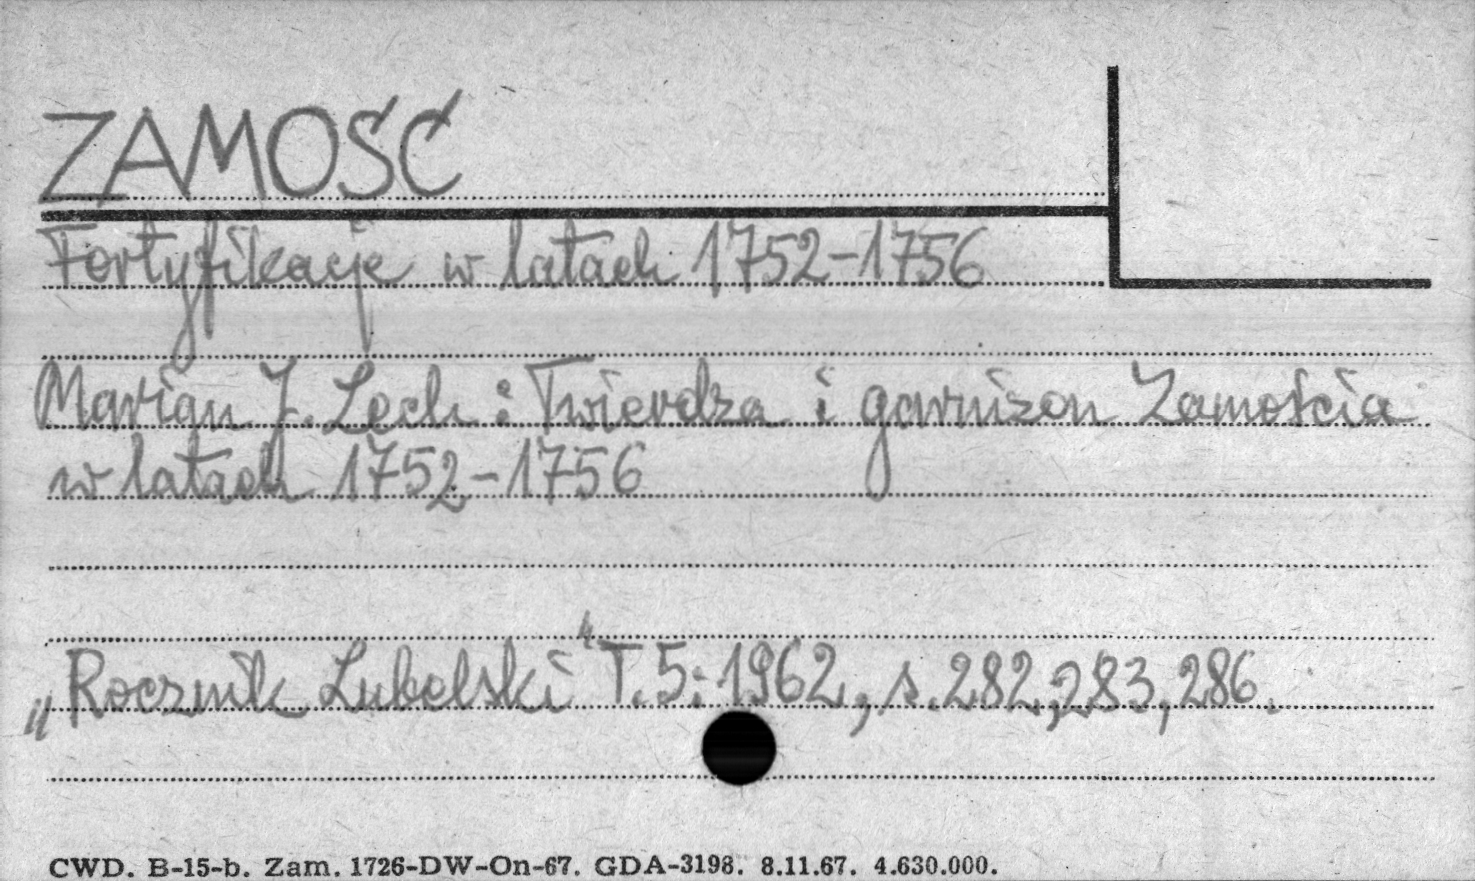 ZAMOŚĆ
Fortyfikacje w latach 1752-1756
Marian J. Lech: Twierdza i garnizon Zamościa
w latach 1752-1756
„Rocznik Lubelski" T.5: 1962, s. 282, 283, 286.
CWD. B-15-b. Zam. 1726-DW-On-67. GDA-3198. 8.11.67. 4.630.000.